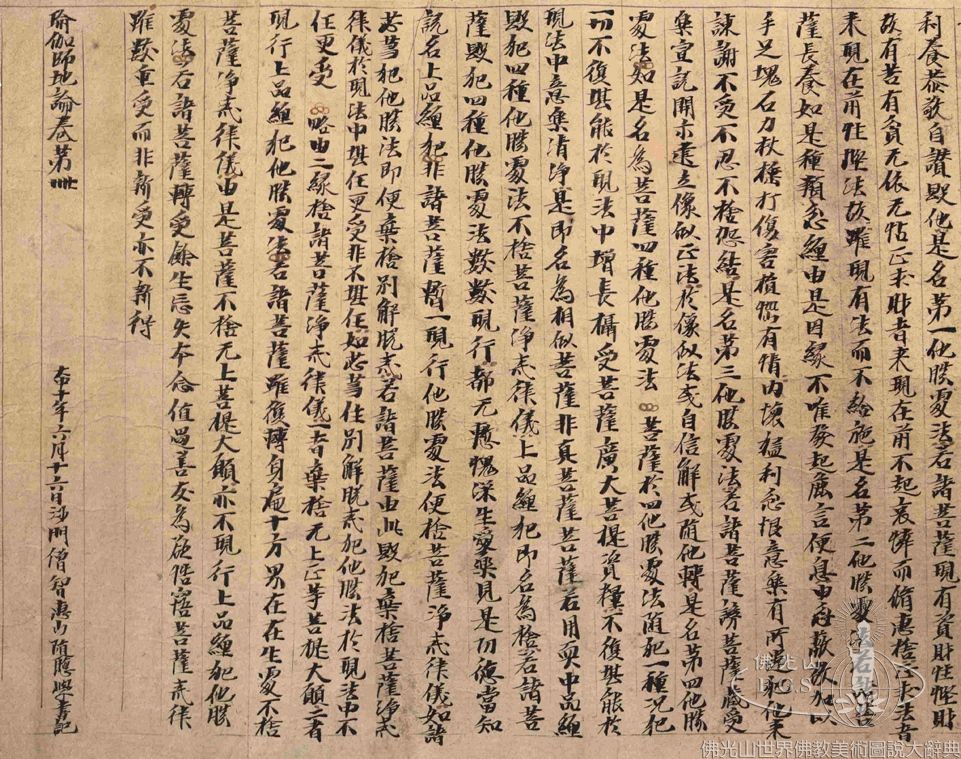 利養恭敬自讚毀他是名第一他勝處法若諸菩薩現有資財性慳財
故有苦有貧无依无怙正求財者来現在前不起哀憐而脩惠捨正求法者
来現在前性慳法故雖現有法而不給施是名第二他勝處法若諸菩
薩長養如是種類忿纏由是因緣不唯發起麁言便息由忿蔽故加以
手足塊石刀杖捶打傷害損惱有情内懷猛利忿恨意樂有所違犯他来
諫謝不受不忍不捨怨結是名第三他勝處法若諸菩薩謗菩薩藏愛
樂宣說開示建立像似正法於像似法或自信解或隨他轉是名第四他勝
處法如是名為菩薩四種他勝處法 菩薩於四他勝處法隨犯一種况犯
一切不復堪能於現法中增長攝受菩薩廣大菩提資糧不復堪能於
現法中意樂清淨是即名為相似菩薩非真菩薩菩薩若用耎中品纏
毀犯四種他勝處法不捨菩薩淨戒律儀上品纏犯即名為捨若諸菩
薩毀犯四種他勝處法數數現行都无慙愧深生愛樂見是功德當知
說名上品纏犯非諸菩薩暫一現行他勝處法便捨菩薩淨戒律儀如諸
苾芻犯他勝法即便棄捨別解脫戒若諸菩薩由此毀犯棄捨菩薩淨戒
律儀於現法中堪任更受非不堪任如苾芻住別解脫戒犯他勝法於現法中不
任更受 略由二緣捨諸菩薩淨戒律儀一者棄捨无上正等菩提大願二者
現行上品纏犯他勝處法若諸菩薩雖復轉身遍十方界在在生處不捨
菩薩淨戒律儀由是菩薩不捨无上菩提大願亦不現行上品纏犯他勝
處法若諸菩薩轉受餘生忘失本念值遇善友為欲悟寤菩薩戒律
雖數重受而非新受亦不新得
瑜伽師地論卷第卌 大中十年六月十六日沙門僧智惠山隨聽學書記
佛光山
F.G.S.
佛光山世界佛教美術圖說大辭典